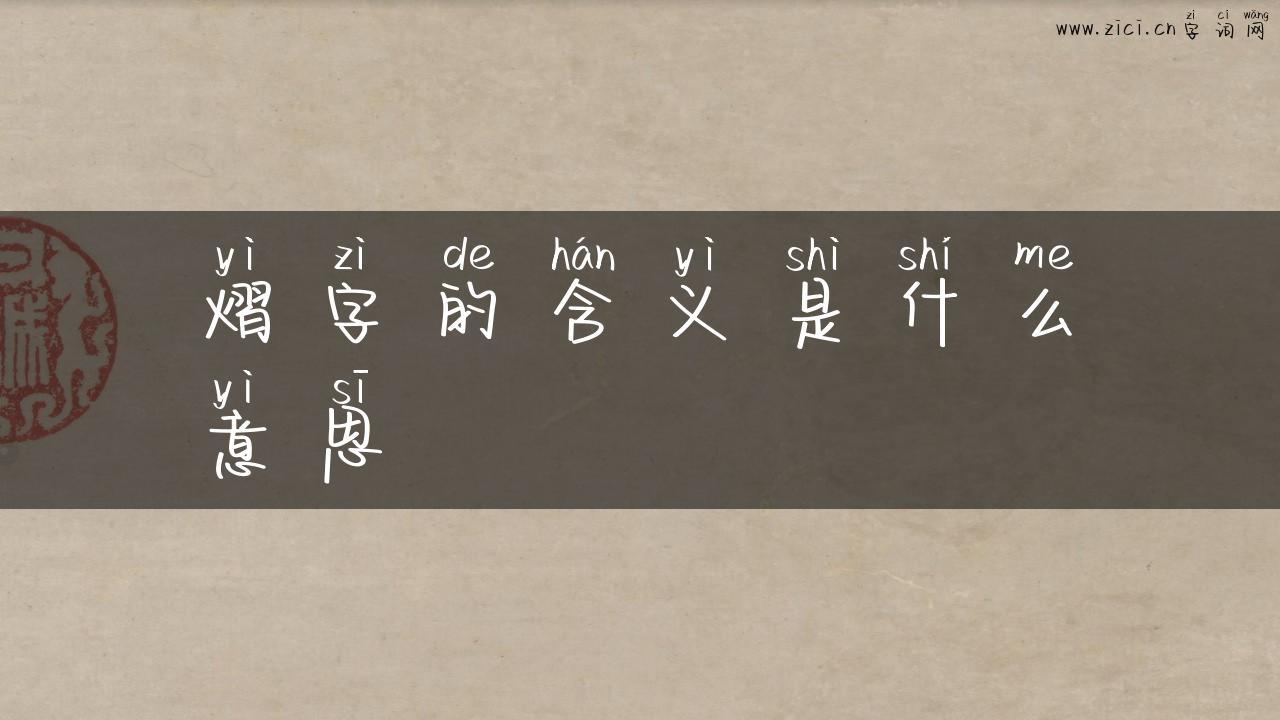 zì cí wǎng
www.zici.cn 字词网
yì zì de hán yì shì shí me
熠字的含义是什么
yì sī
意思